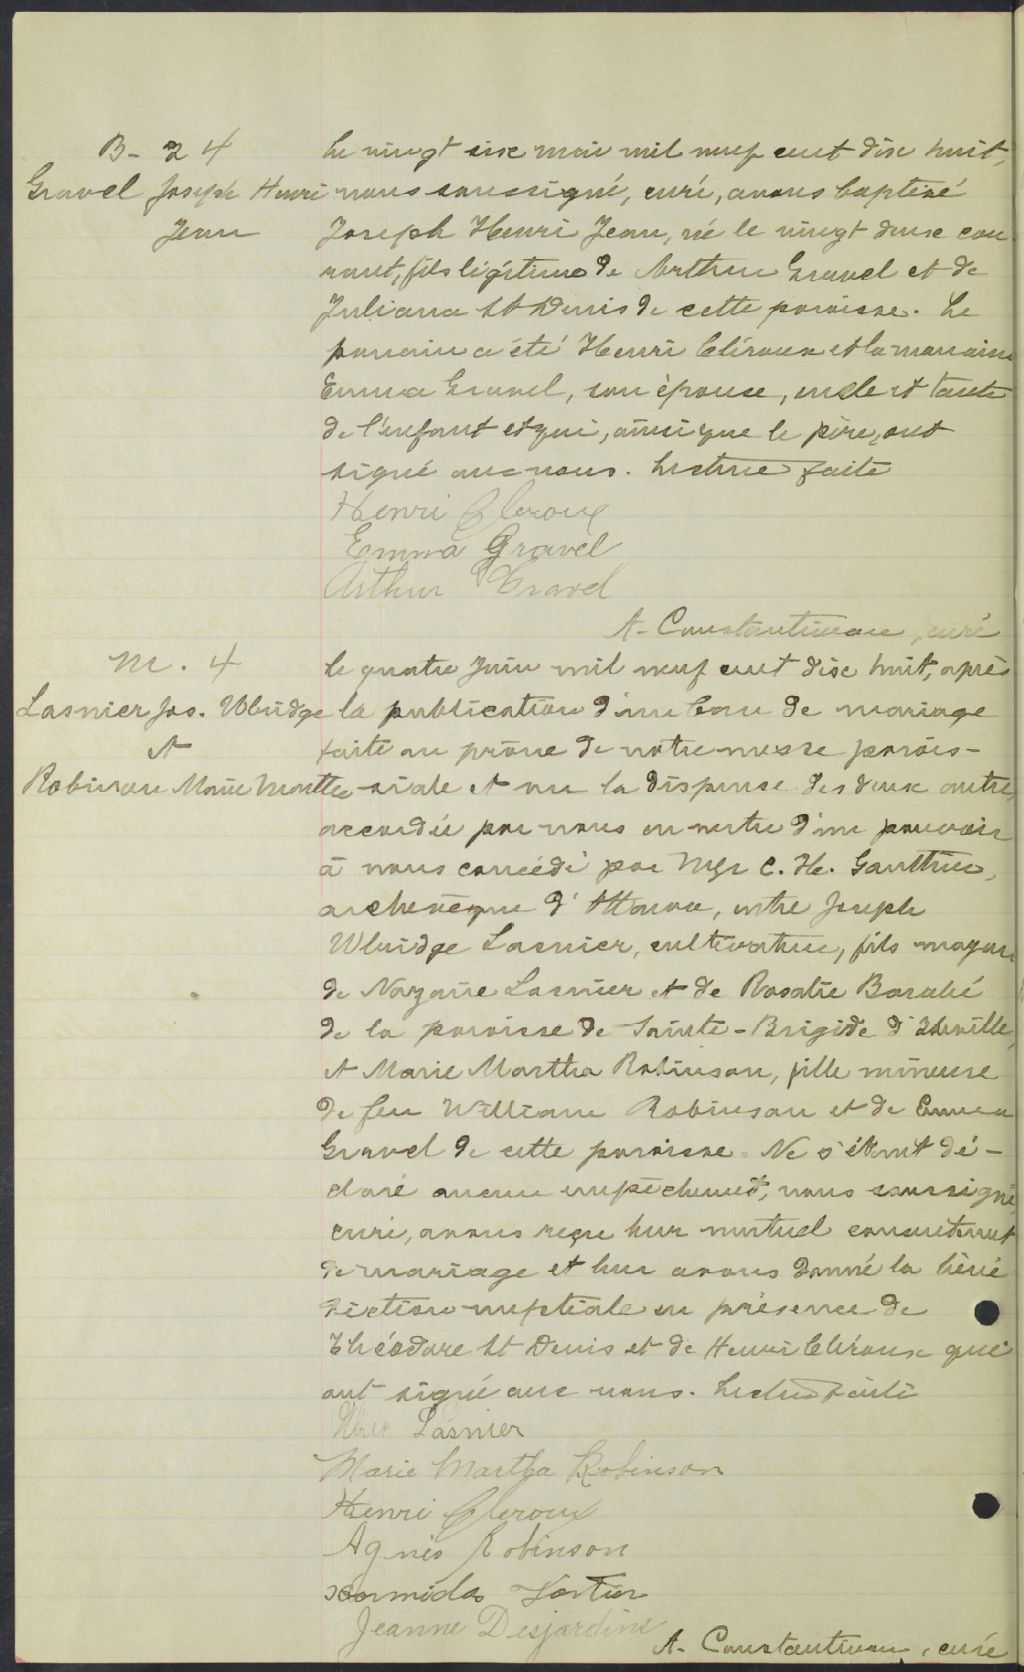 B- 24
Gravel Joseph Henri
Jean
Le vingt six mai mil neuf cent dix huit,
nous soussigné, curé, avons baptisé
Joseph Henri Jean, né le vingt deux cou
rant, fils légitime de Arthur Gravel et de
Juliana St Denis de cette paroisse. Le
parrain a été Henri Cléroux et la marraine
Emma Gravel, son épouse, oncle et tante
de l'enfant et qui, ainsi que le père, ont
signé avec nous. Lecture faite
Henri Cleroux
Emma Gravel
Arthur Gravel
A. Constantineau, curé
M. 4
Lasnier Jos. Wbridge
et
Robinson Marie Martha
Le quatre Juin mil neuf cent dix huit, après
la publication d'un ban de mariage
faite au prône de notre messe parois-
siale et vu la dispense des deux autres
accordée par nous en vertu d'un pouvoir
à nous concédé par Mgr C. H. Gauthier,
archevêque d'Ottawa, entre Joseph
Lasnier, cultivateur, fils majeur
de Nazaire Lasnier et de Rosalie Barabé
de la paroisse de Sainte-Brigide d'Iberville,
et Marie Martha Robinson, fille mineure
de feu William Robinson et de Emma
Gravel de cette paroisse. Ne s'étant dé-
claré aucun empêchement, nous soussigné,
curé, avons reçu leur mutuel consentement
de mariage et leur avons donné la béné
diction nuptiale en présence de
Théodore St Denis et de Henri Cléroux qui
ont signé avec nous. Lecture faite
Lasnier
Marie Martha Robinson
Henri Cleroux
Agnes Robinson
Hormidas Fortier
Jeanne Desjardins
A. Constantineau, curé